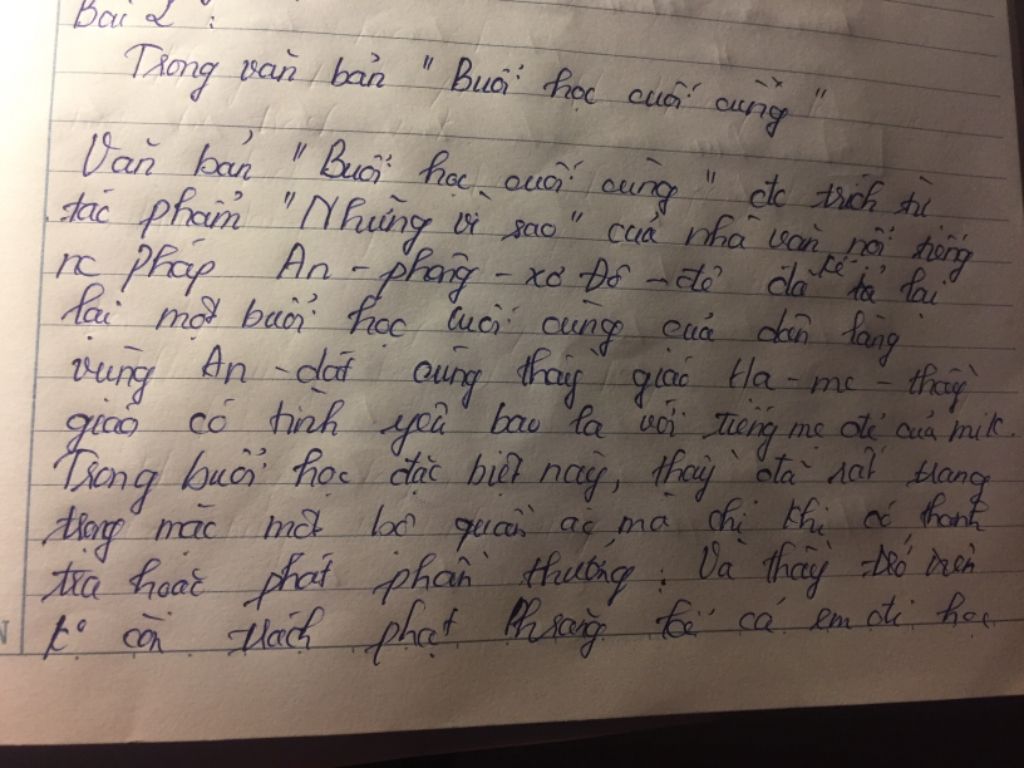 Bài 2 :
Trong văn bản " Buổi học cuối cùng "
Văn bản " Buổi học cuối cùng " đc trích từ
tác phẩm "Những vì sao" của nhà văn nổi tiếng
nc Pháp An - phông - xơ Đô - đê đã kể tả lại
lại một buổi học cuối cùng của dân làng
vùng An - dát cùng thầy giáo Ha - me - thầy
giáo có tình yêu bao la với tiếng mẹ đẻ của mik.
Trong buổi học đặc biệt này, thầy đã rất trang
trọng mặc một bộ quần áo mà chỉ khi có thanh
tra hoặc phát phần thưởng. Và thầy trên
ko còn trách phạt Phrăng kể cả em đi học